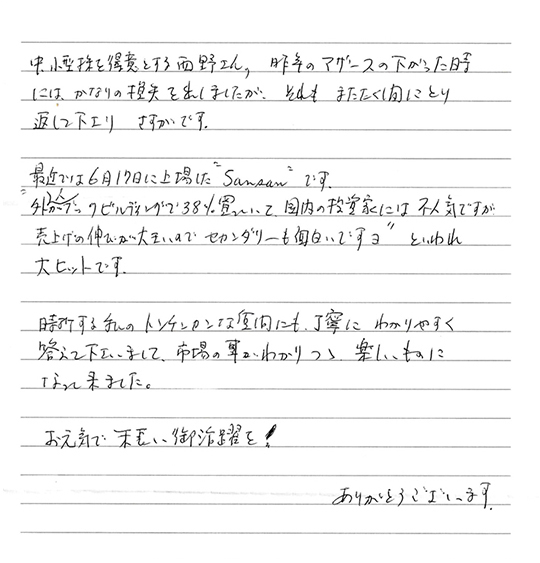 中小型株を得意とする西野さん、昨年のマザーズの下がった時
にはかなりの損失を出しましたが、それも またたく間にとり
返して下さり さすがです。
最近では6月19日に上場した"Sansan"です。
"外人がブックビルディングで38%買っていて、国内の投資家には不人気ですが
売上げの伸びが大きいので セカンダリーも面白いですョ" といわれ
大ヒットです。
時折する私のトンチンカンな質問にも、丁寧に わかりやすく
答えて下さいまして、市場の事がわかりつつ 楽しいものに
なって来ました。
お元気で 末長い御活躍を!
ありがとうございます。